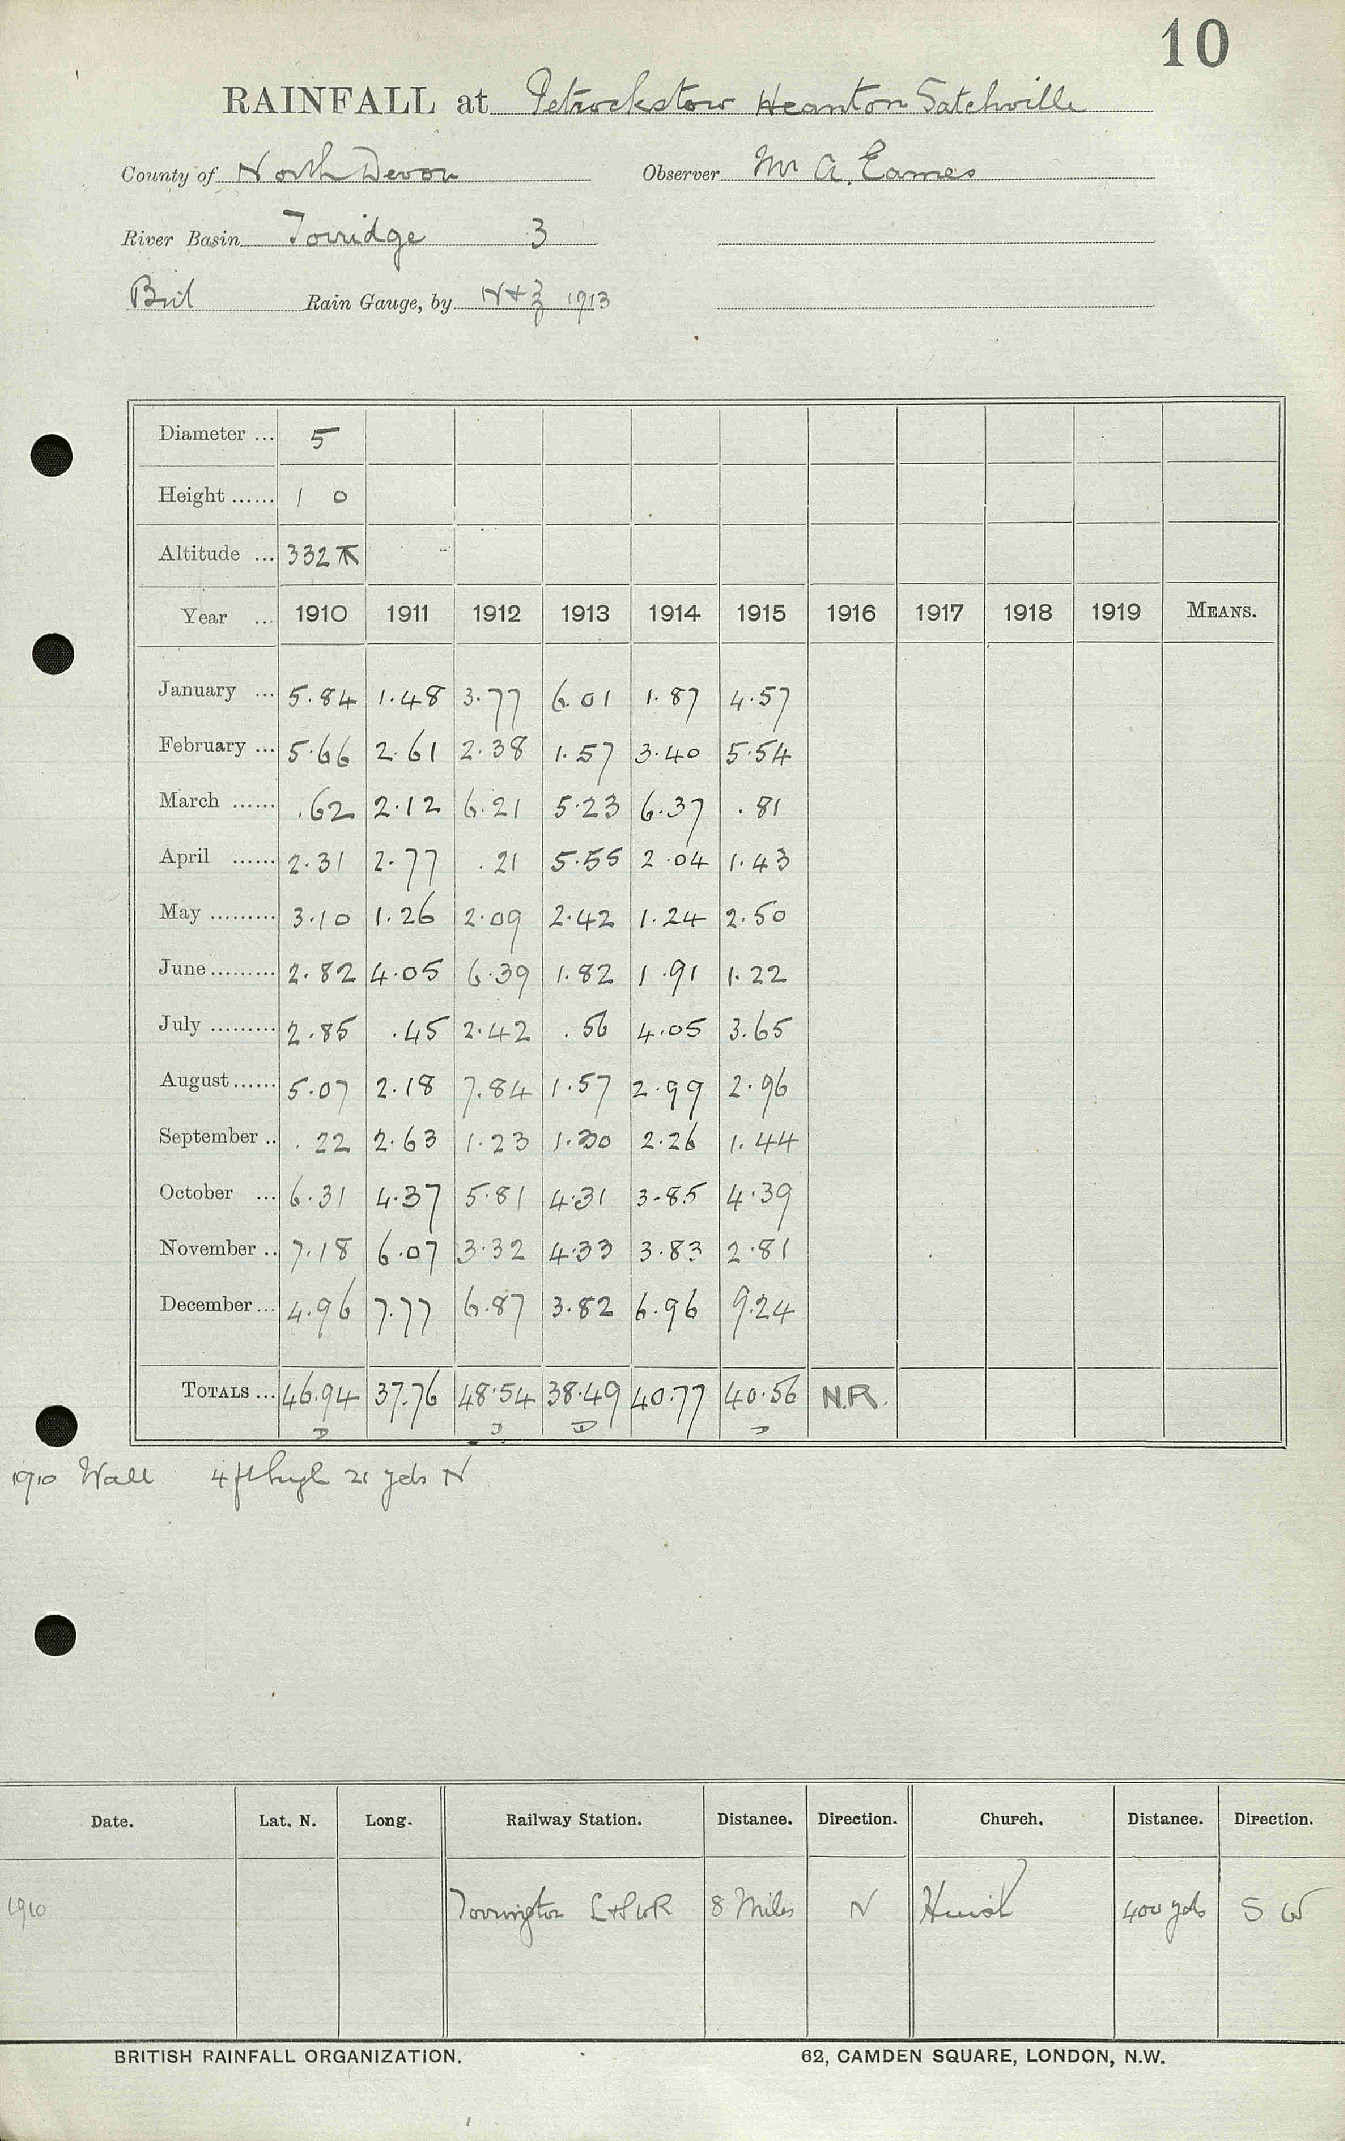 10
RAINFALL at Petrockstow Heanton Satchville
County of North Devon Observer Mr A. Eames
River Basin Torridge 3
Rain Gauge, by N+Z 1913
Diameter ... 5
Height ...... 1 0
Altitude ... 332
Year ... 1910 1911 1912 1913 1914 1915 1916 1917 1918 1919 MEANS.
January ... 5.84 1.48 3.77 6.01 1.87 4.57
February ... 5.66 2.61 2.38 1.57 3.40 5.54
March ...... .62 2.12 6.21 5.23 6.37 .81
April ...... 2.31 2.77 .21 5.55 2.04 1.43
May ......... 3.10 1.26 2.09 2.42 1.24 2.50
June ......... 2.82 4.05 6.39 1.82 1.91 1.22
July ......... 2.85 .45 2.42 .56 4.05 3.65
August ...... 5.07 2.18 7.84 1.57 2.99 2.96
September .. .22 2.63 1.23 1.30 2.26 1.44
October ... 6.31 4.37 5.81 4.31 3.85 4.39
November .. 7.18 6.07 3.32 4.33 3.83 2.81
December ... 4.96 7.77 6.87 3.82 6.96 9.24
TOTALS ... 46.94 37.76 48.54 38.49 40.77 40.56 N.R.
D D D D
1910 Wall 4 ft high 21 yds N
Date. Lat. N. Long. Railway Station. Distance. Direction. Church. Distance. Direction.
1910 Torrington L+SWR 8 Miles N Huish 400 yds S W
BRITISH RAINFALL ORGANIZATION. 62, CAMDEN SQUARE, LONDON, N.W.